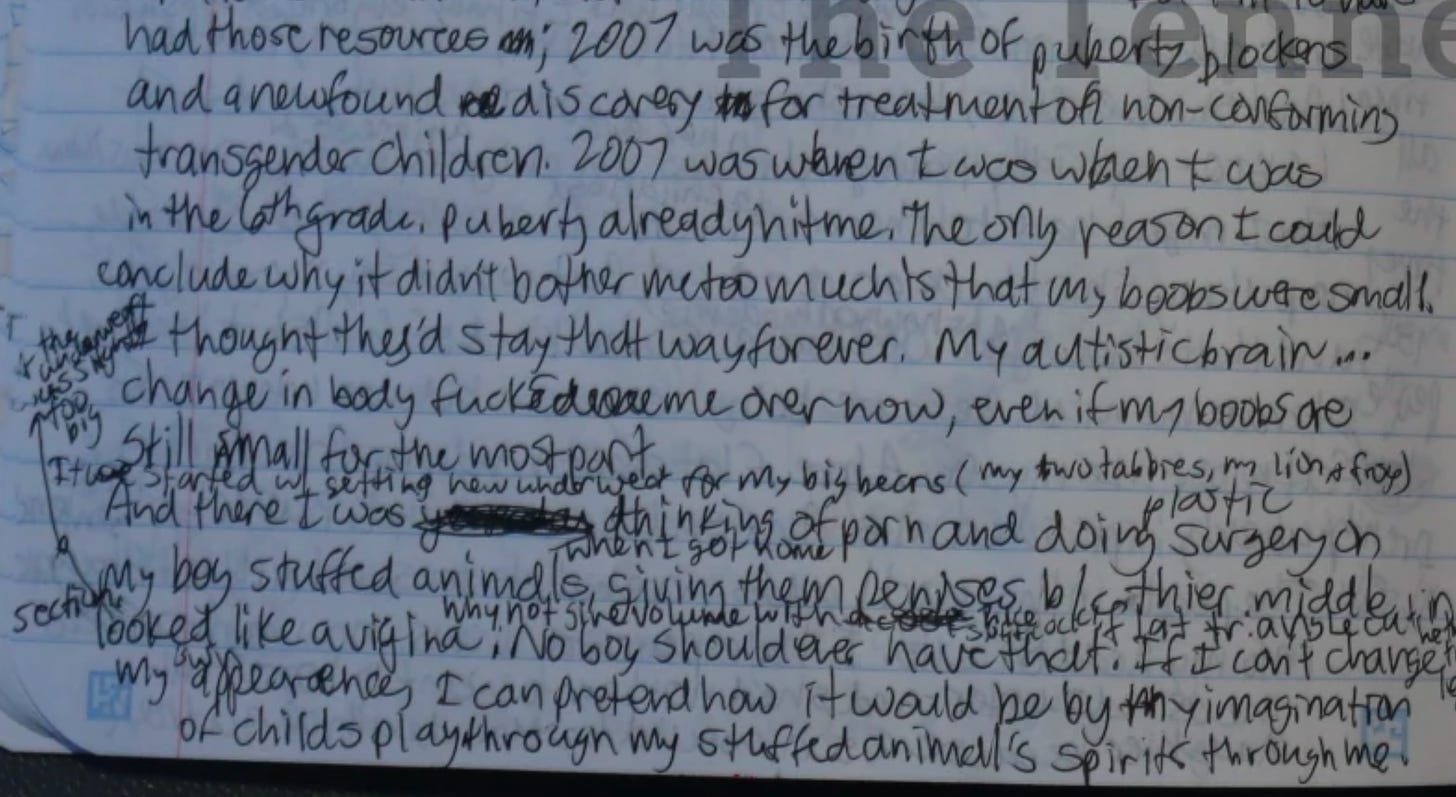 The Tenne
had those resources; 2007 was the birth of puberty blockers
and a newfound discovery for treatment of non-conforming
transgender children. 2007 was when I was when I was
in the 6th grade. puberty already hit me. The only reason I could
conclude why it didn't bother me too much is that my boobs were small.
I thought they'd stay that way forever. My autistic brain...
change in body fucked me over now, even if my boobs are
still small for the most part
It started w/ getting new underwear for my big bears (my two tabbies, my lion, + frog)
And there I was thinking of porn and doing plastic surgery on
when I got home
my boy stuffed animals, giving them penises b/c thier middle
section looked like a vigina. No boy should ever have that. If I can't change
why not give volume with
my appearence, I can pretend how it would be by my imagination
of childs play through my stuffed animall's spirits through me.
the underweat
was
too
big